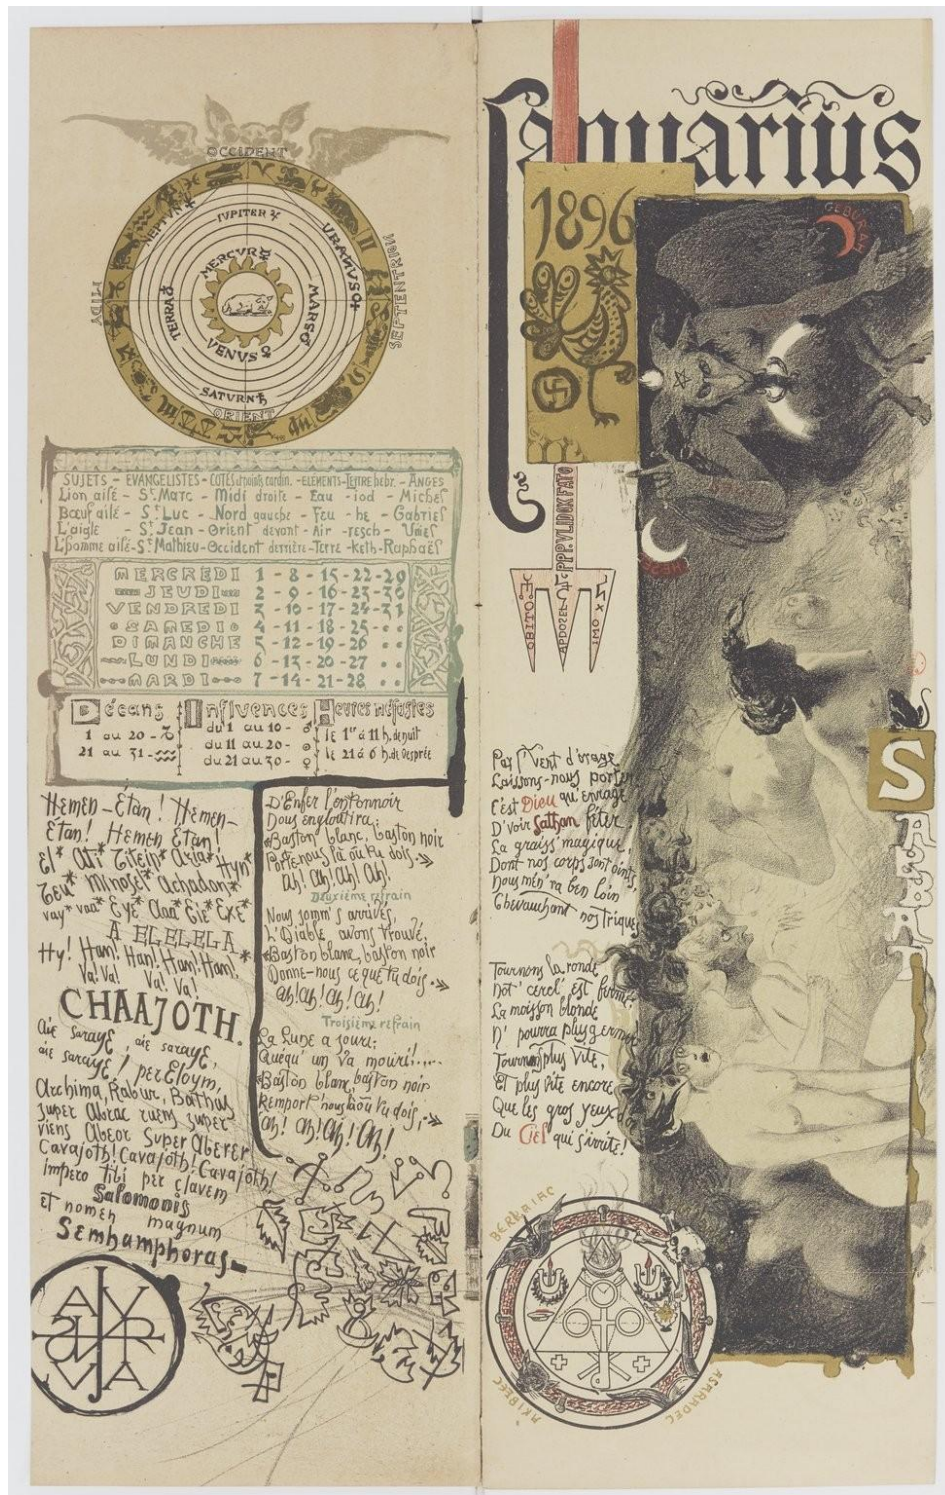 OCCIDENT
NEPTUNE
IUPITER ♃
URANUS
MERCVR ☿
TERRA
MARS ♂
VENVS ♀
SATVRN ♄
MIDY
SEPTENTRION
ORIENT
SUJETS - EVANGELISTES - COTES et points cardin. - ELEMENTS - LETTRE hebr. - ANGES
Lion ailé - St Marc - Midi droite - Eau - iod - Michel
Bœuf ailé - St Luc - Nord gauche - Feu - he - Gabriel
L'aigle - St Jean - Orient devant - Air - resch - Uriel
L'homme ailé - St Mathieu - Occident derrière - Terre - keth - Raphaël
MERCREDI 1 - 8 - 15 - 22 - 29
JEUDI 2 - 9 - 16 - 23 - 30
VENDREDI 3 - 10 - 17 - 24 - 31
SAMEDI 4 - 11 - 18 - 25
DIMANCHE 5 - 12 - 19 - 26
LUNDI 6 - 13 - 20 - 27
MARDI 7 - 14 - 21 - 28
Décans
1 au 20 - ♑
21 au 31 - ♒
Influences
du 1 au 10 - ♂
du 11 au 20 -
du 21 au 30 -
Heures néfastes
le 1er à 11 h. de nuit
le 21 à 6 h. de vesprée
Hemen - Étan! Hemen -
Étan! Hemen Étan!
El* Ati* Titeip* Aria* Hyn*
Teu* Minosel* Achadon*
vay* vaa* Eye* Aaa* Eie* Exe*
A EL EL EL A
Hy! Hau! Hau! Hau! Hau!
Va! Va! Va! Va!
CHAAJOTH.
Aie saraye, aie saraye,
aie saraye! per Eloym,
Archima, Rabur, Bathas
super Abrac ruens super
viens Abeor Super Aberer
Cavajoth! Cavajoth! Cavajoth!
impero tibi per clavem
Salomonis
et nomen magnum
Semhamphoras
D'Enfer l'entonnoir
Nous engloutira:
Baston blanc, baston noir
Porte nous là où tu dois.
Ah! Ah! Ah! Ah!
Deuxième refrain
Nous somm's arrivés,
L'Diable avons trouvé,
Baston blanc, baston noir
Donne-nous ce que tu dois
Ah! Ah! Ah! Ah!
Troisième refrain
La Lune a souri:
Quéqu'un va mouri!....
Baston blanc, baston noir
Remport' nous où tu dois,
Ah! Ah! Ah! Ah!
Januarius
1896
GEBURAH
PPP.VLIDOXFATO
OBITO
IMO
Par l'Vent d'orage
Laissons-nous porter
C'est Dieu qu'enrage
D'voir Sathan fêter
La graiss' magique
Dont nos corps sont oints,
Nous mèn'ra ben loin
Chevauchant nos triques
SABBAT
Tournons la ronde
Not' cercl' est fermé
La moisson blonde
N' pourra plus germer!
Tournons plus vite,
Et plus vite encore
Que les gros yeux d'or
Du Ciel qui s'invite!
BERBAIAC
AKIBEEC
ASMADEC